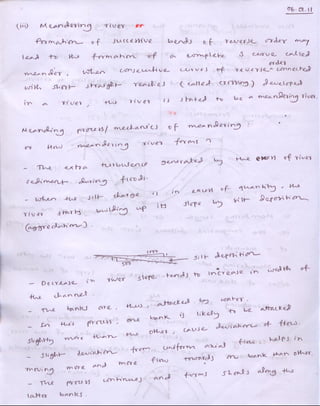 (iii) Meandering river
formation of successive bends of reverse order may
lead to the formation of a complete S curve called
meander, when consecutive curves of reverse order connected
with short straight reaches (called crossing) developed
in a river, the river is stated to be a meandering river.
Meanding process/ mechanics of meandering :
or How meandering river forms ?
- The extra turbulence generated by the excess of river
sediment during floods.
- when the silt charge is in excess of quantity, the
river starts building up its slope by silt deposition
(aggredation).
silt deposition
- Decrease in river slope tends to increase in width of
the channel.
- The banks are, thus, attacked by water.
- In this process, one bank is likely to be attacked
slightly more than the other, cause deviation of flow.
- slight deviation from uniform axial flow, helps in
moving more and more flow towards on bank than other.
- The process continues and forms shoals along the
latter banks